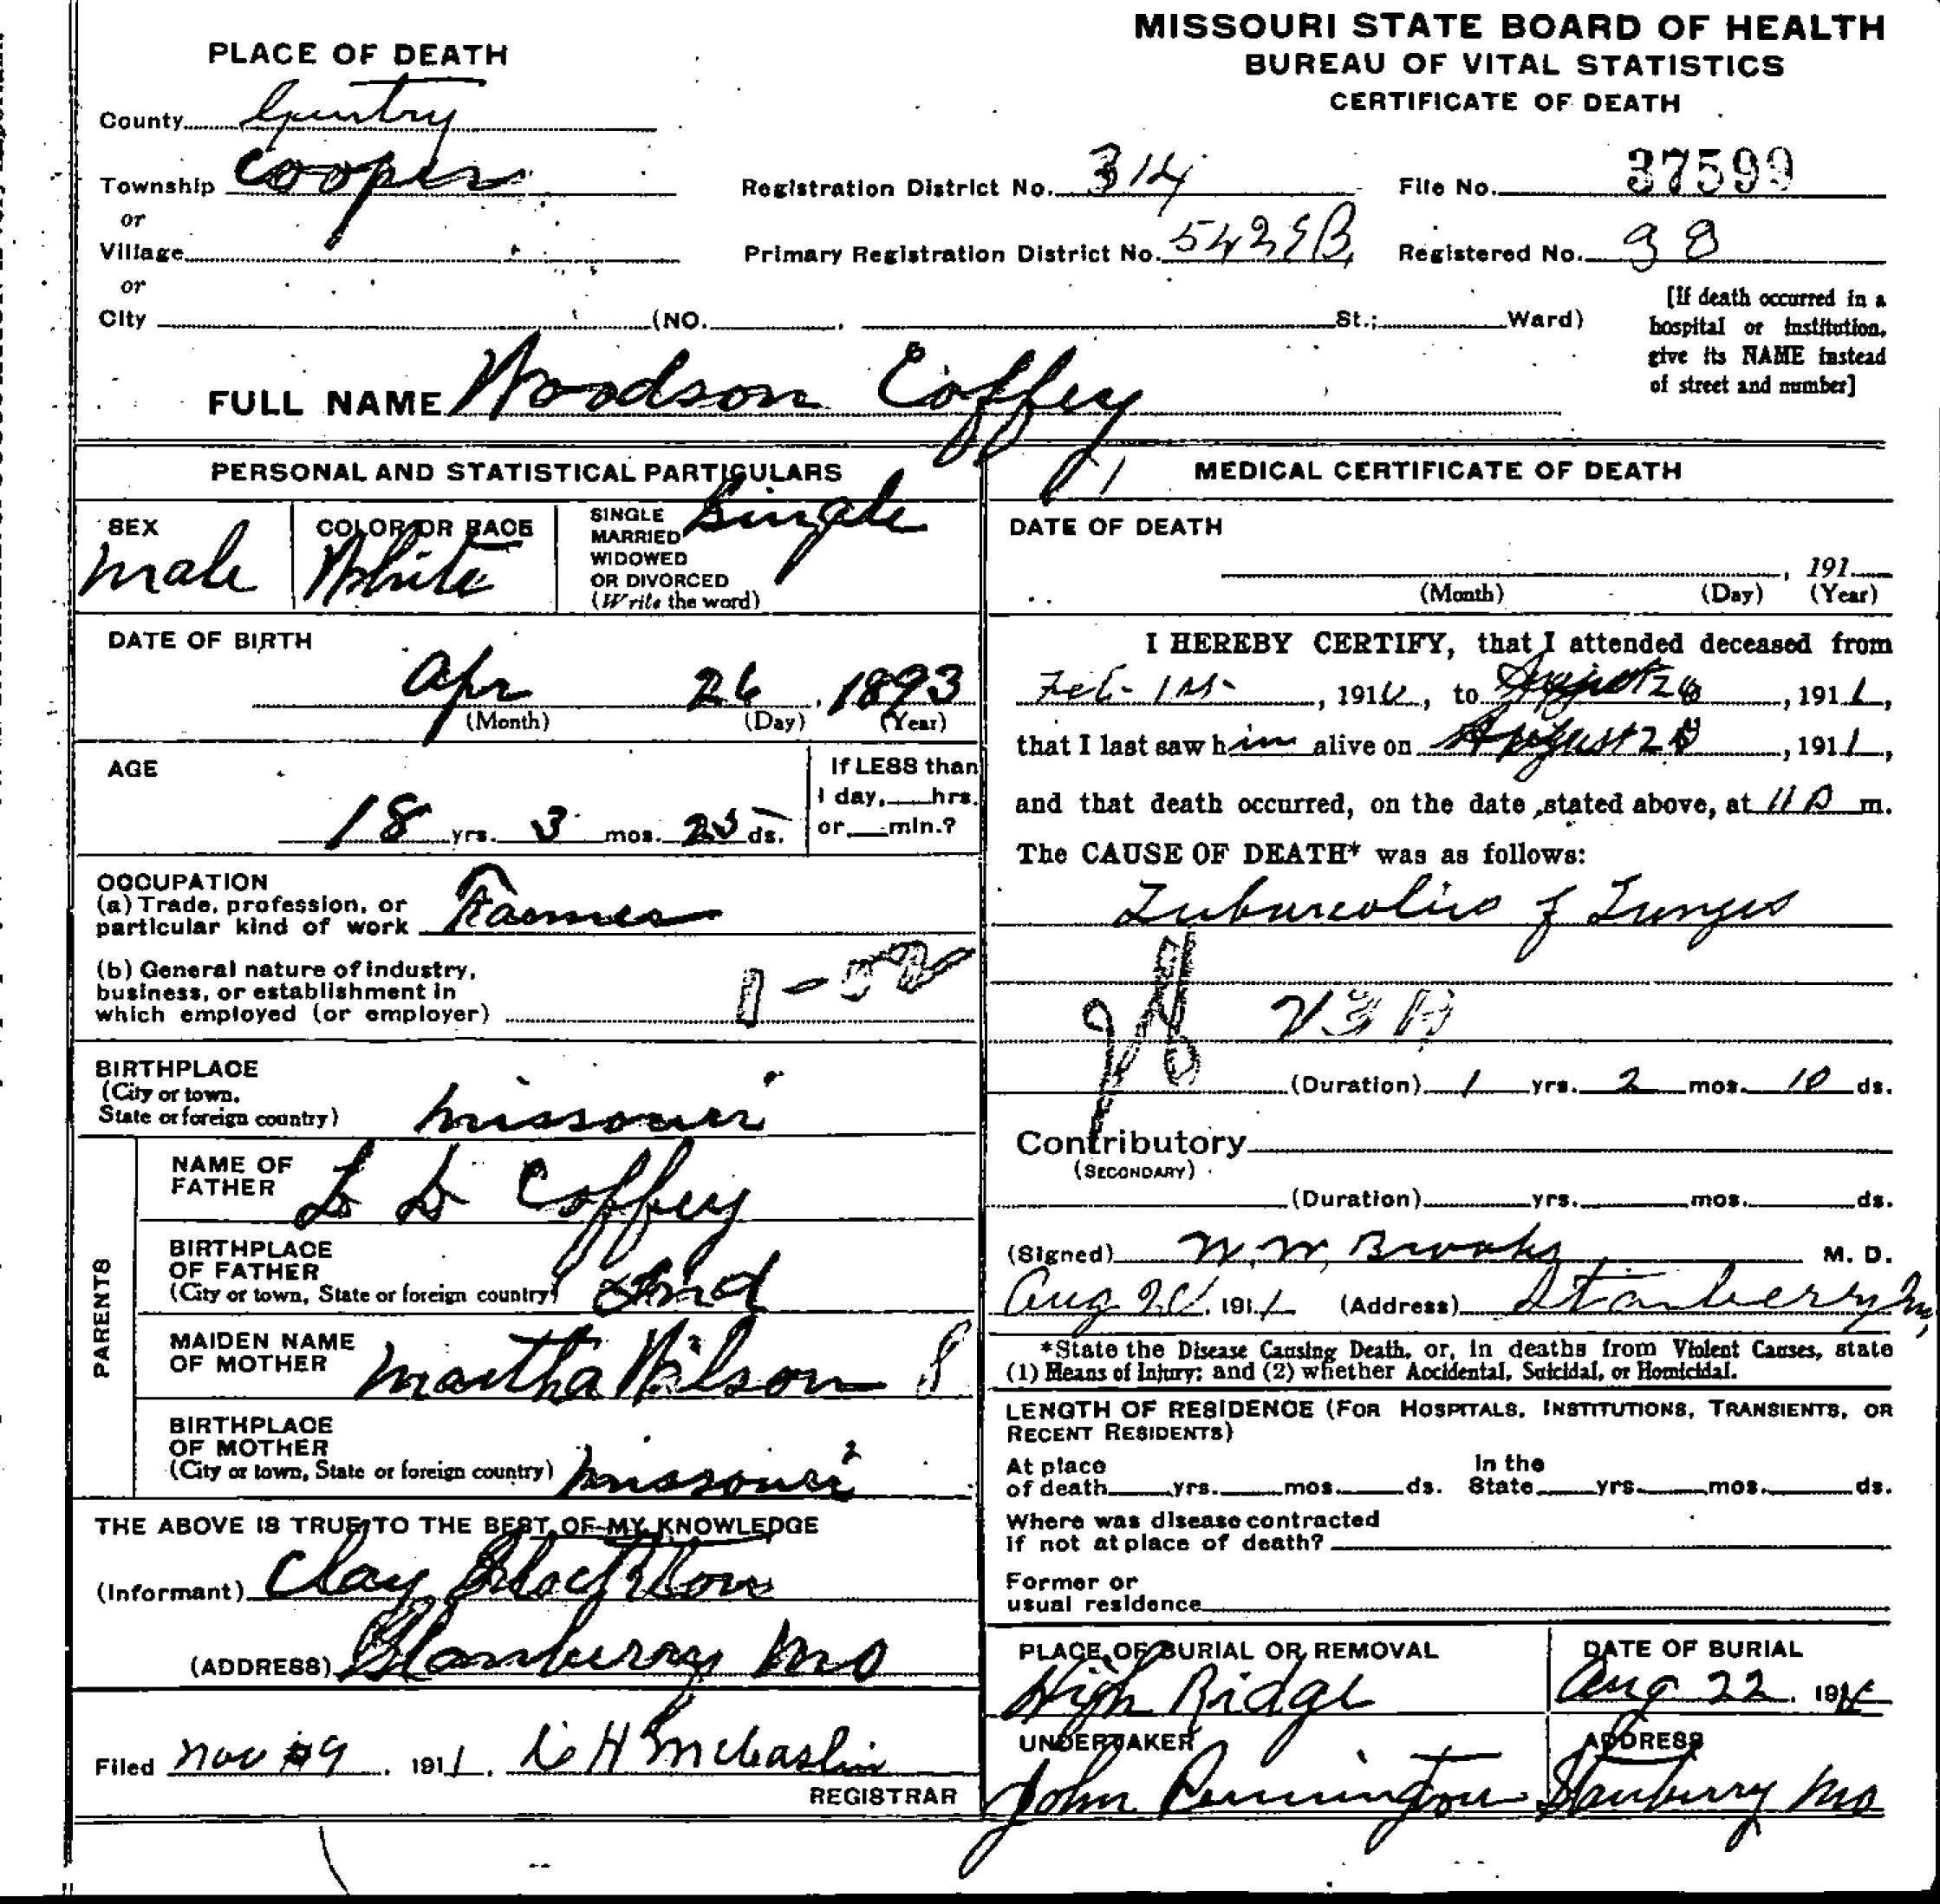 MISSOURI STATE BOARD OF HEALTH
BUREAU OF VITAL STATISTICS
CERTIFICATE OF DEATH
PLACE OF DEATH
County Gentry
Township Cooper
or
Village
or
City (NO. St.; Ward)
Registration District No. 314
File No. 37599
Primary Registration District No.
Registered No. 38
[If death occurred in a
hospital or institution,
give its NAME instead
of street and number]
FULL NAME Woodson Coffey
PERSONAL AND STATISTICAL PARTICULARS
SEX
male
COLOR OR RACE
White
SINGLE
MARRIED
WIDOWED
OR DIVORCED
(Write the word)
Single
DATE OF BIRTH
Apr 26, 1893
(Month) (Day) (Year)
AGE
18 yrs. 3 mos. 25 ds.
If LESS than
1 day, hrs.
or min.?
OCCUPATION
(a) Trade, profession, or
particular kind of work Farmer
(b) General nature of industry,
business, or establishment in
which employed (or employer)
BIRTHPLACE
(City or town,
State or foreign country) Missouri
PARENTS
NAME OF
FATHER L D Coffey
BIRTHPLACE
OF FATHER
(City or town, State or foreign country) Ind
MAIDEN NAME
OF MOTHER Martha Wilson
BIRTHPLACE
OF MOTHER
(City or town, State or foreign country) Missouri
THE ABOVE IS TRUE TO THE BEST OF MY KNOWLEDGE
(Informant) Clay
(ADDRESS) Stanberry Mo
Filed Nov 9, 1911, H McCaslin
REGISTRAR
MEDICAL CERTIFICATE OF DEATH
DATE OF DEATH
, 191
(Month) (Day) (Year)
I HEREBY CERTIFY, that I attended deceased from
Feb. 1st, 191, to August 20, 1911,
that I last saw him alive on August 20, 1911,
and that death occurred, on the date stated above, at 11 P m.
The CAUSE OF DEATH* was as follows:
Tuburcolics of Lungs
(Duration) 1 yrs. 2 mos. 10 ds.
Contributory
(SECONDARY)
(Duration) yrs. mos. ds.
(Signed) W. W. Brooks M. D.
Aug, 1911 (Address) Stanberry Mo
*State the Disease Causing Death, or, in deaths from Violent Causes, state
(1) Means of Injury; and (2) whether Accidental, Suicidal, or Homicidal.
LENGTH OF RESIDENCE (FOR HOSPITALS, INSTITUTIONS, TRANSIENTS, OR
RECENT RESIDENTS)
At place
of death yrs. mos. ds.
In the
State yrs. mos. ds.
Where was disease contracted
if not at place of death?
Former or
usual residence
PLACE OF BURIAL OR REMOVAL
High Ridge
DATE OF BURIAL
Aug 22, 191
UNDERTAKER
John Pennington
ADDRESS
Stanberry Mo